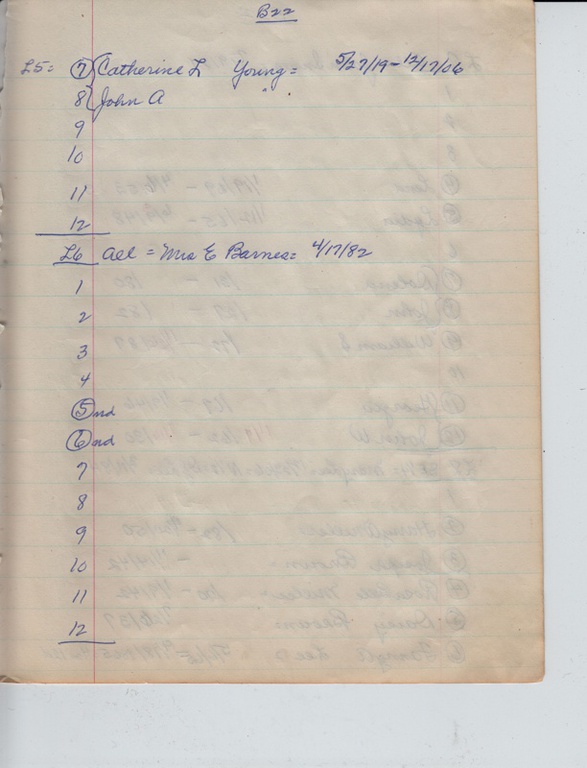 B22
L5: 7 Catherine L Young = 5/27/19 - 12/17/06
8 John A " "
9
10
11
12
L6 all = Mrs E Barnes = 4/17/82
1
2
3
4
5 nd
6 nd
7
8
9
10
11
12